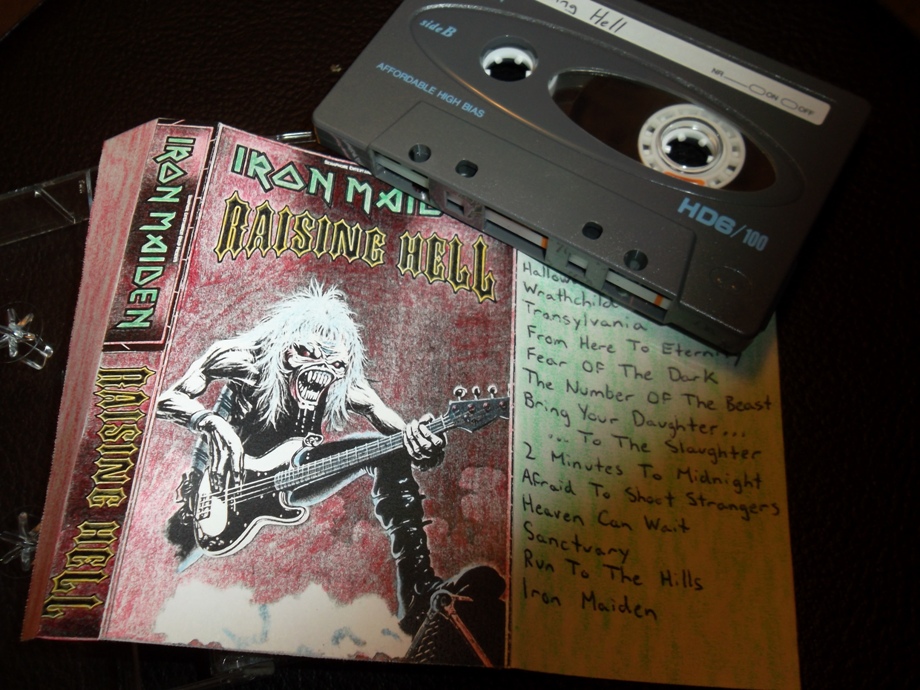 ing Hell
side B
NR ON OFF
AFFORDABLE HIGH BIAS
HD6/100
IRON MAIDEN
RAISING HELL
IRON MAID
RAISING HELL
Hallow
Wrathchild
Transylvania
From Here To Eternity
Fear Of The Dark
The Number Of The Beast
Bring Your Daughter...
... To The Slaughter
2 Minutes To Midnight
Afraid To Shoot Strangers
Heaven Can Wait
Sanctuary
Run To The Hills
Iron Maiden